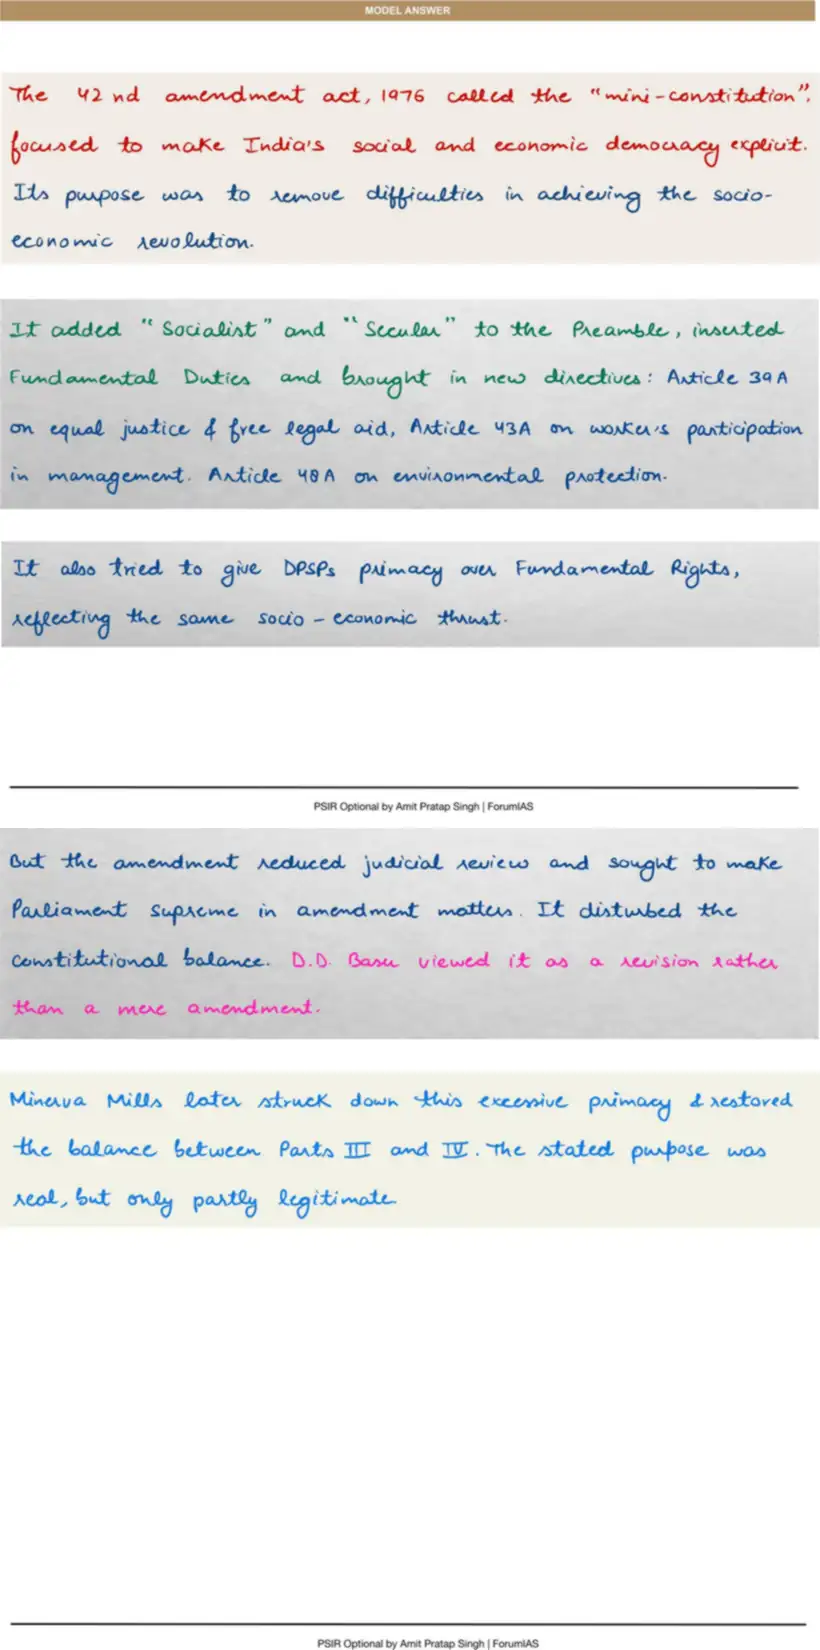 MODEL ANSWER
The 42 nd amendment act, 1976 called the "mini-constitution",
focused to make India's social and economic democracy explicit.
Its purpose was to remove difficulties in achieving the socio-
economic revolution.
It added "Socialist" and "Secular" to the Preamble, inserted
Fundamental Duties and brought in new directives: Article 39A
on equal justice & free legal aid, Article 43A on worker's participation
in management. Article 48A on environmental protection.
It also tried to give DPSPs primacy over Fundamental Rights,
reflecting the same socio-economic thrust.
PSIR Optional by Amit Pratap Singh | ForumIAS
But the amendment reduced judicial review and sought to make
Parliament supreme in amendment matters. It disturbed the
constitutional balance. D.D. Basu viewed it as a revision rather
than a mere amendment.
Minerva Mills later struck down this excessive primacy & restored
the balance between Parts III and IV. The stated purpose was
real, but only partly legitimate
PSIR Optional by Amit Pratap Singh | ForumIAS